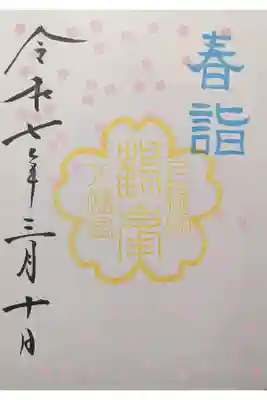 春詣
鶴
八幡宮
令和七年三月十日